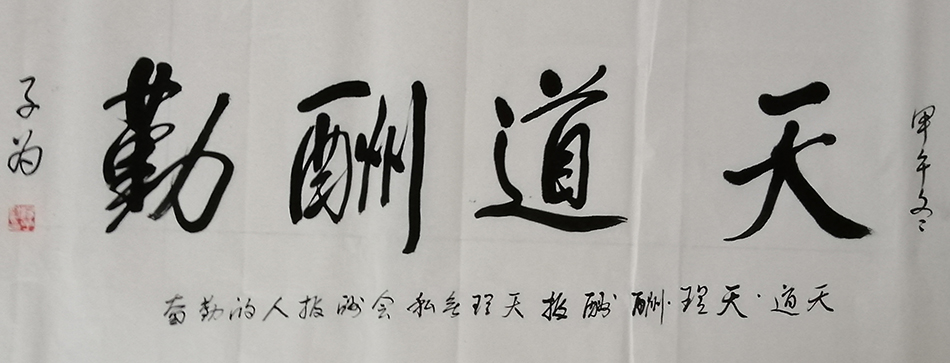 甲午冬
天道酬勤
天道·天理·酬酬报天理无私会酬报人的勤奋
子为